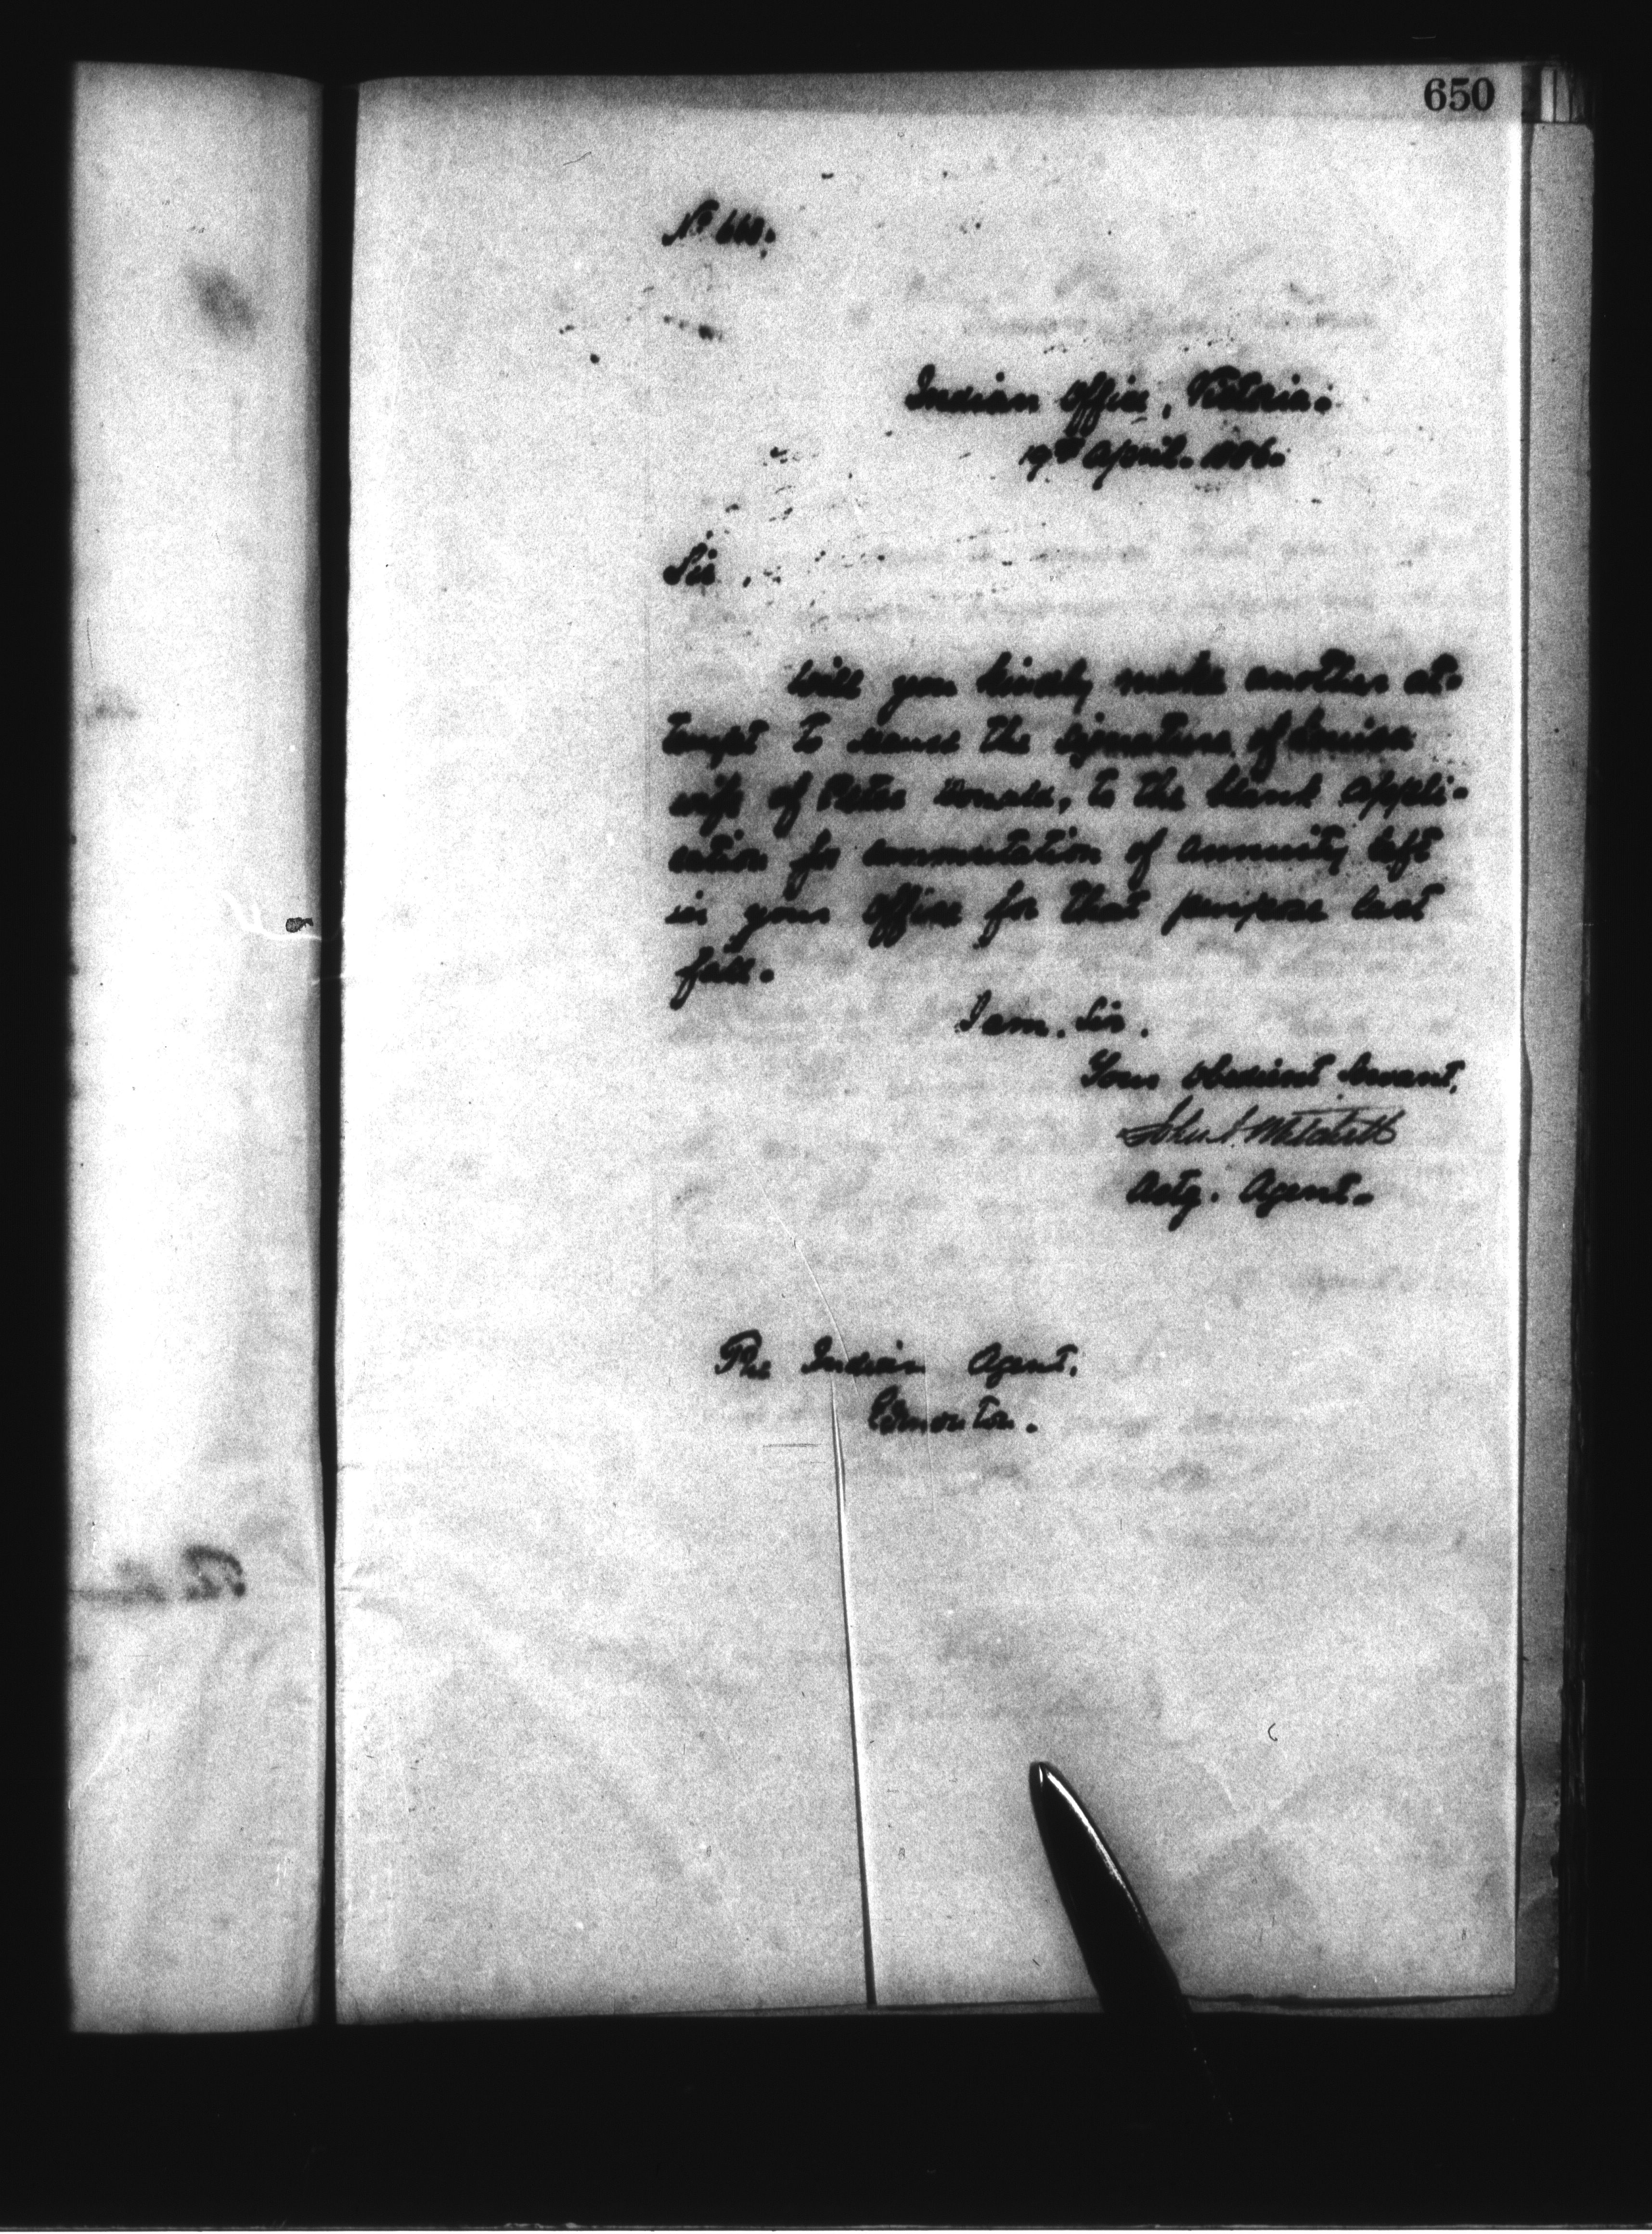 650
Nº 660.
Indian Office, Victoria.
19th April. 1886.
Sir,
Will you kindly make another at-
tempt to secure the signature of Louisa
wife of Peter Donald, to the blank appli-
cation for commutation of annuity left
in your office for that purpose last
fall.
I am, Sir.
Your obedient Servant,
John A. Mitchell
Actg. Agent.
The Indian Agent.
Edmonton.